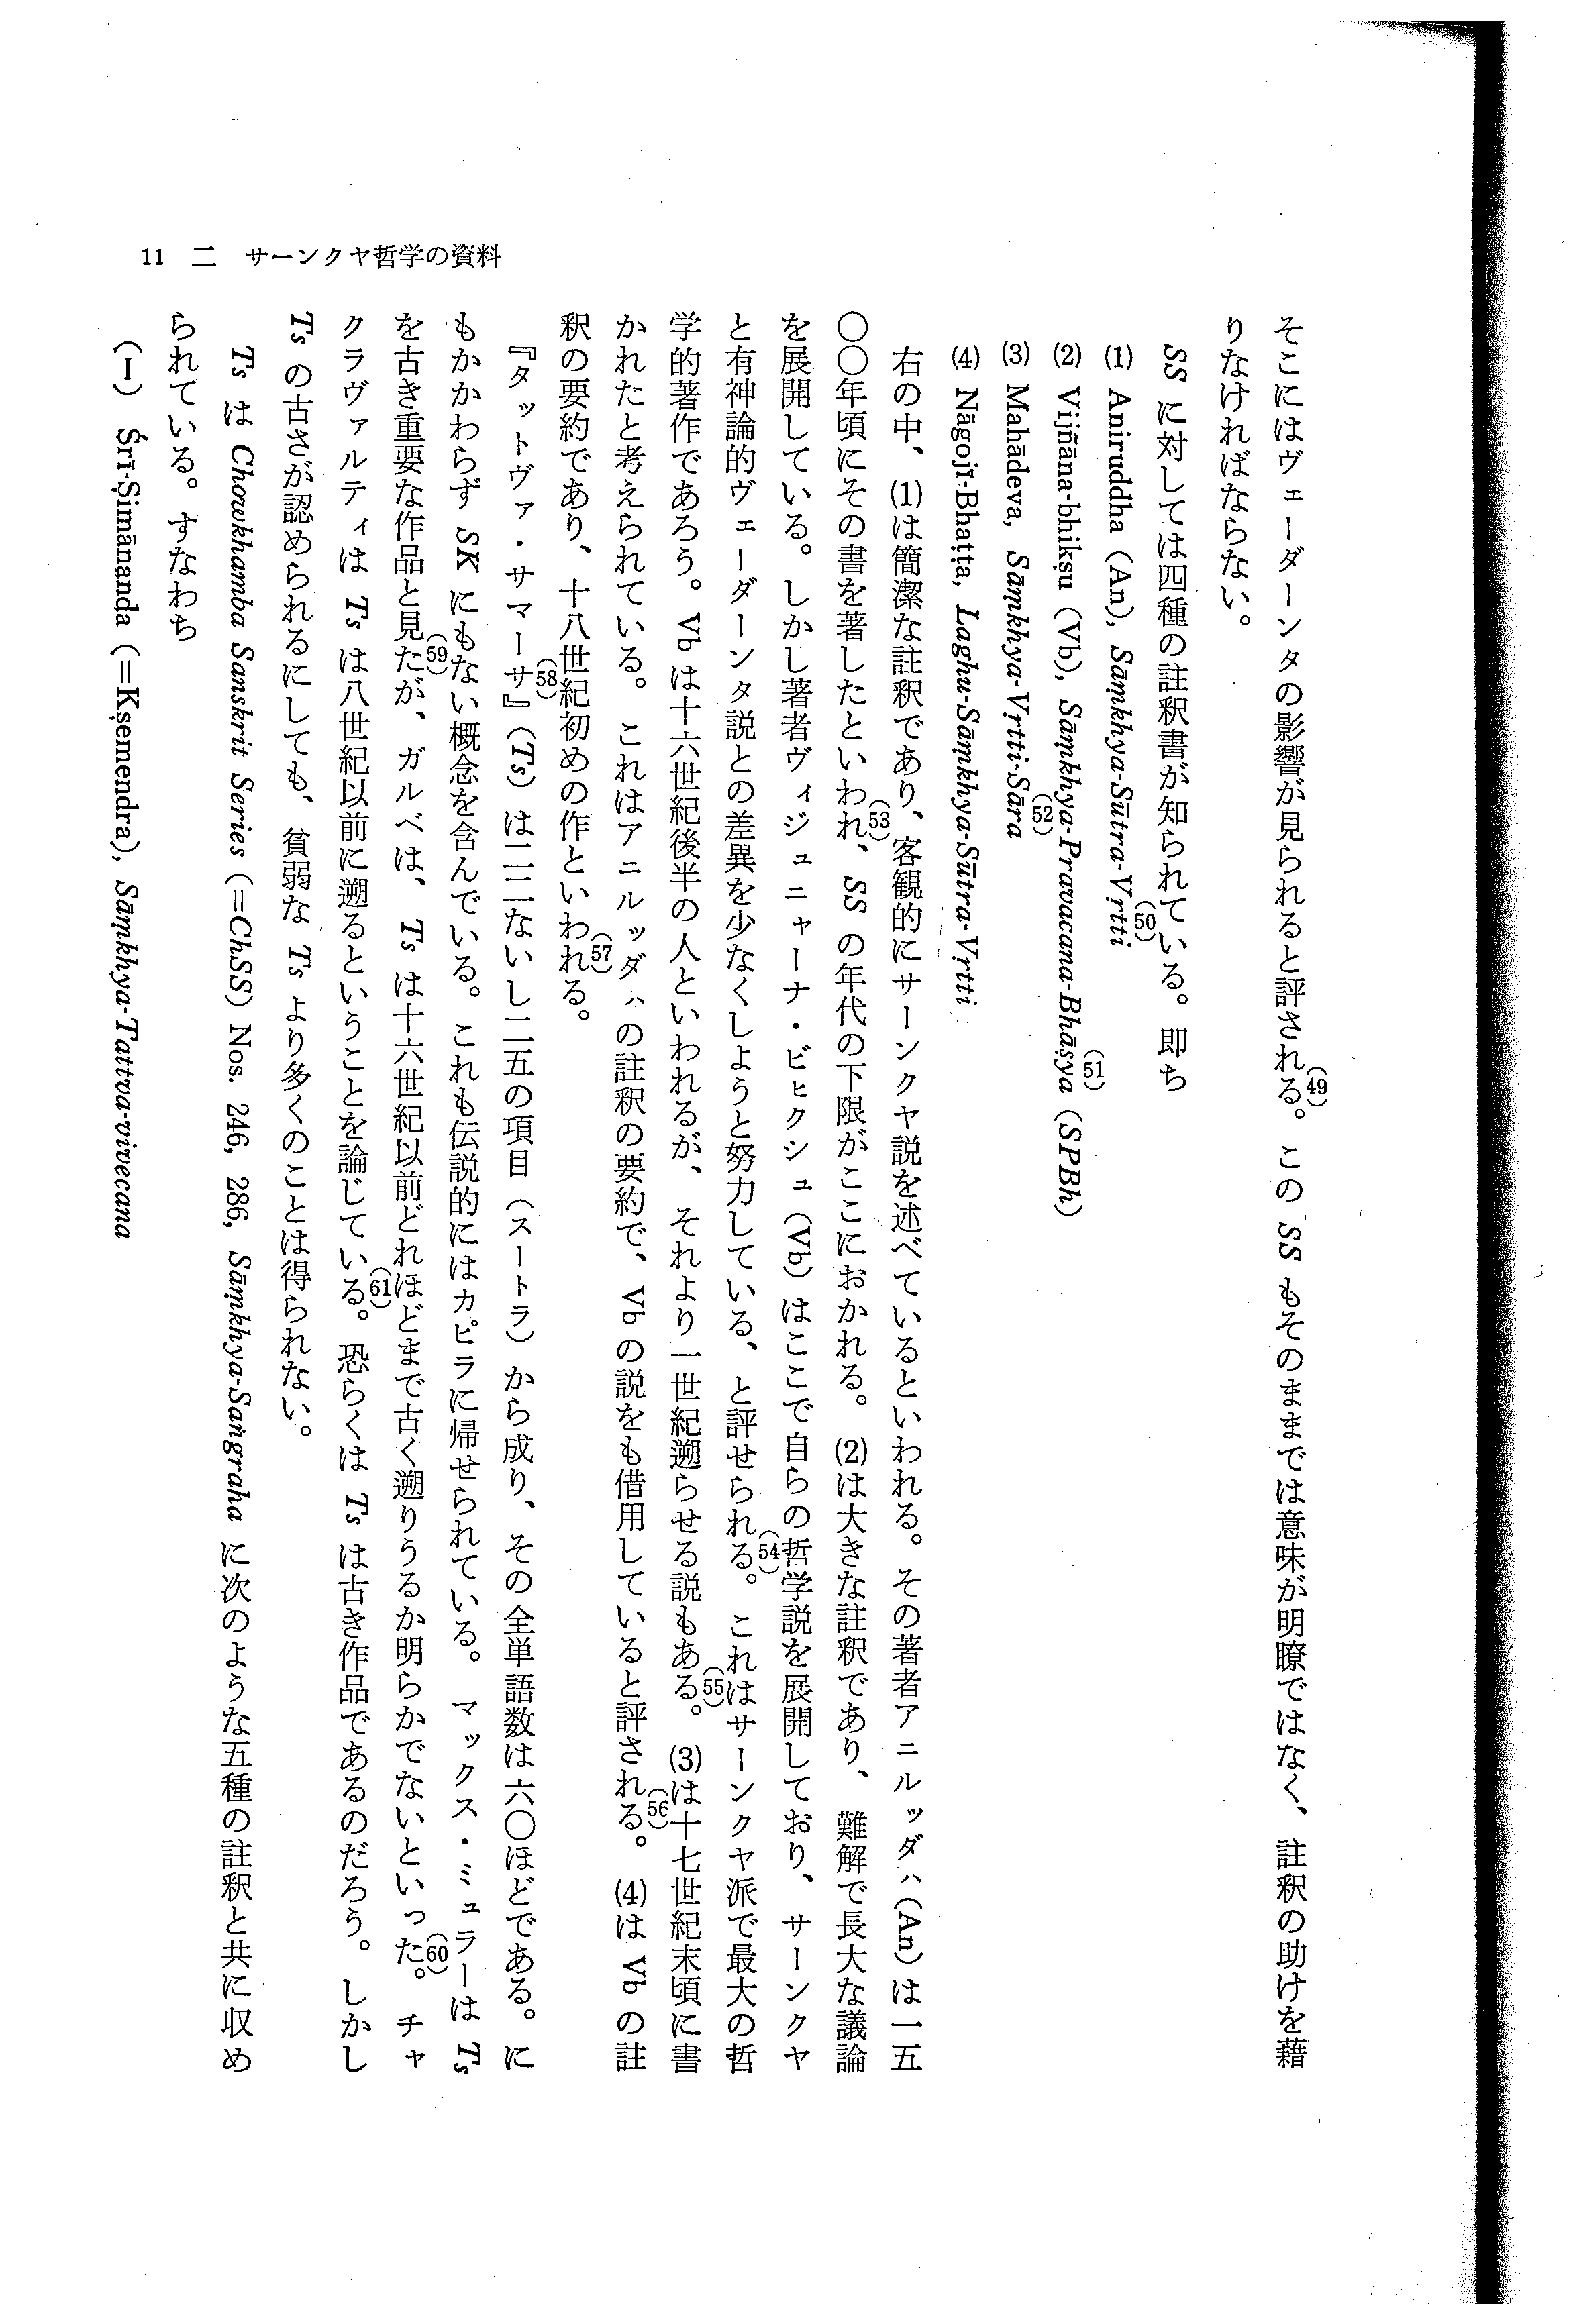 11 二 サーンクヤ哲学の資料
そこにはヴェーダーンタの影響が見られると評される(49)。この SS もそのままでは意味が明瞭ではなく、註釈の助けを藉
りなければならない。
SS に対しては四種の註釈書が知られている(50)。即ち
(1) Aniruddha (An), Sāṃkhya-Sūtra-Vṛtti
(2) Vijñāna-bhikṣu (Vb), Sāṃkhya-Pravacana-Bhāṣya(51) (SPBh)
(3) Mahādeva, Sāṃkhya-Vṛtti-Sāra(52)
(4) Nāgojī-Bhaṭṭa, Laghu-Sāṃkhya-Sūtra-Vṛtti
右の中、(1)は簡潔な註釈であり、客観的にサーンクヤ説を述べているといわれる。その著者アニルッダハ(An)は一五
〇〇年頃にその書を著したといわれ(53)、SS の年代の下限がここにおかれる。(2)は大きな註釈であり、難解で長大な議論
を展開している。しかし著者ヴィジュニャーナ・ビヒクシュ(Vb)はここで自らの哲学説を展開しており、サーンクヤ
と有神論的ヴェーダーンタ説との差異を少なくしようと努力している、と評せられる(54)。これはサーンクヤ派で最大の哲
学的著作であろう。Vb は十六世紀後半の人といわれるが、それより一世紀遡らせる説もある(55)。(3)は十七世紀末頃に書
かれたと考えられている。これはアニルッダハの註釈の要約で、Vb の説をも借用していると評される(56)。(4)は Vb の註
釈の要約であり、十八世紀初めの作といわれる(57)。
『タットヴァ・サマーサ』(58)(Ts) は二二ないし二五の項目(スートラ)から成り、その全単語数は六〇ほどである。に
もかかわらず SK にもない概念を含んでいる。これも伝説的にはカピラに帰せられている。マックス・ミュラーは Ts
を古き重要な作品と見た(59)が、ガルベは、Ts は十六世紀以前どれほどまで古く遡りうるか明らかでないといった(60)。チャ
クラヴァルティは Ts は八世紀以前に遡るということを論じている(61)。恐らくは Ts は古き作品であるのだろう。しかし
Ts の古さが認められるにしても、貧弱な Ts より多くのことは得られない。
Ts は Chowkhamba Sanskrit Series (=ChSS) Nos. 246, 286, Sāṃkhya-Saṅgraha に次のような五種の註釈と共に収め
られている。すなわち
(I) Śrī-Ṣimānanda (=Kṣemendra), Sāṃkhya-Tattva-vivecana